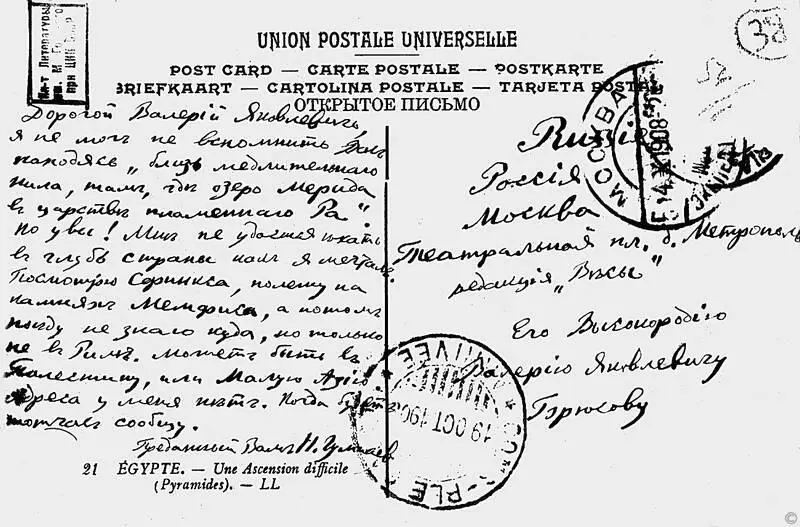 Ин-т Литературы
им. М. Го
при ЦИК
38
52
UNION POSTALE UNIVERSELLE
POST CARD — CARTE POSTALE — POSTKARTE
BRIEFKAART — CARTOLINA POSTALE — TARJETA POSTAL
ОТКРЫТОЕ ПИСЬМО
Дорогой Валерій Яковлевичъ,
я не могъ не вспомнить Васъ
находясь „близь медлительнаго
Нила, тамъ, гдѣ озеро Мерида
въ царствѣ пламеннаго Ра“.
Но увы! Мнѣ не удается ѣхать
въ глубь страны какъ я мечталъ.
Посмотрю Сфинкса, полежу на
камняхъ Мемфиса, а потомъ
поѣду не знаю куда, но только
не въ Римъ. Можетъ быть въ
Палестину, или Малую Азію.
Адреса у меня нѣтъ. Когда будетъ
тотчасъ сообщу.
Преданный Вамъ Н. Гумилев
Russie
Россія
Москва
Театральная пл. д. Метрополь
редакція „Вѣсы“
Его Высокородію
Валерію Яковлевичу
Брюсову
МОСКВА
1908
19 OCT 190
21 ÉGYPTE. — Une Ascension difficile
(Pyramides). — LL
©